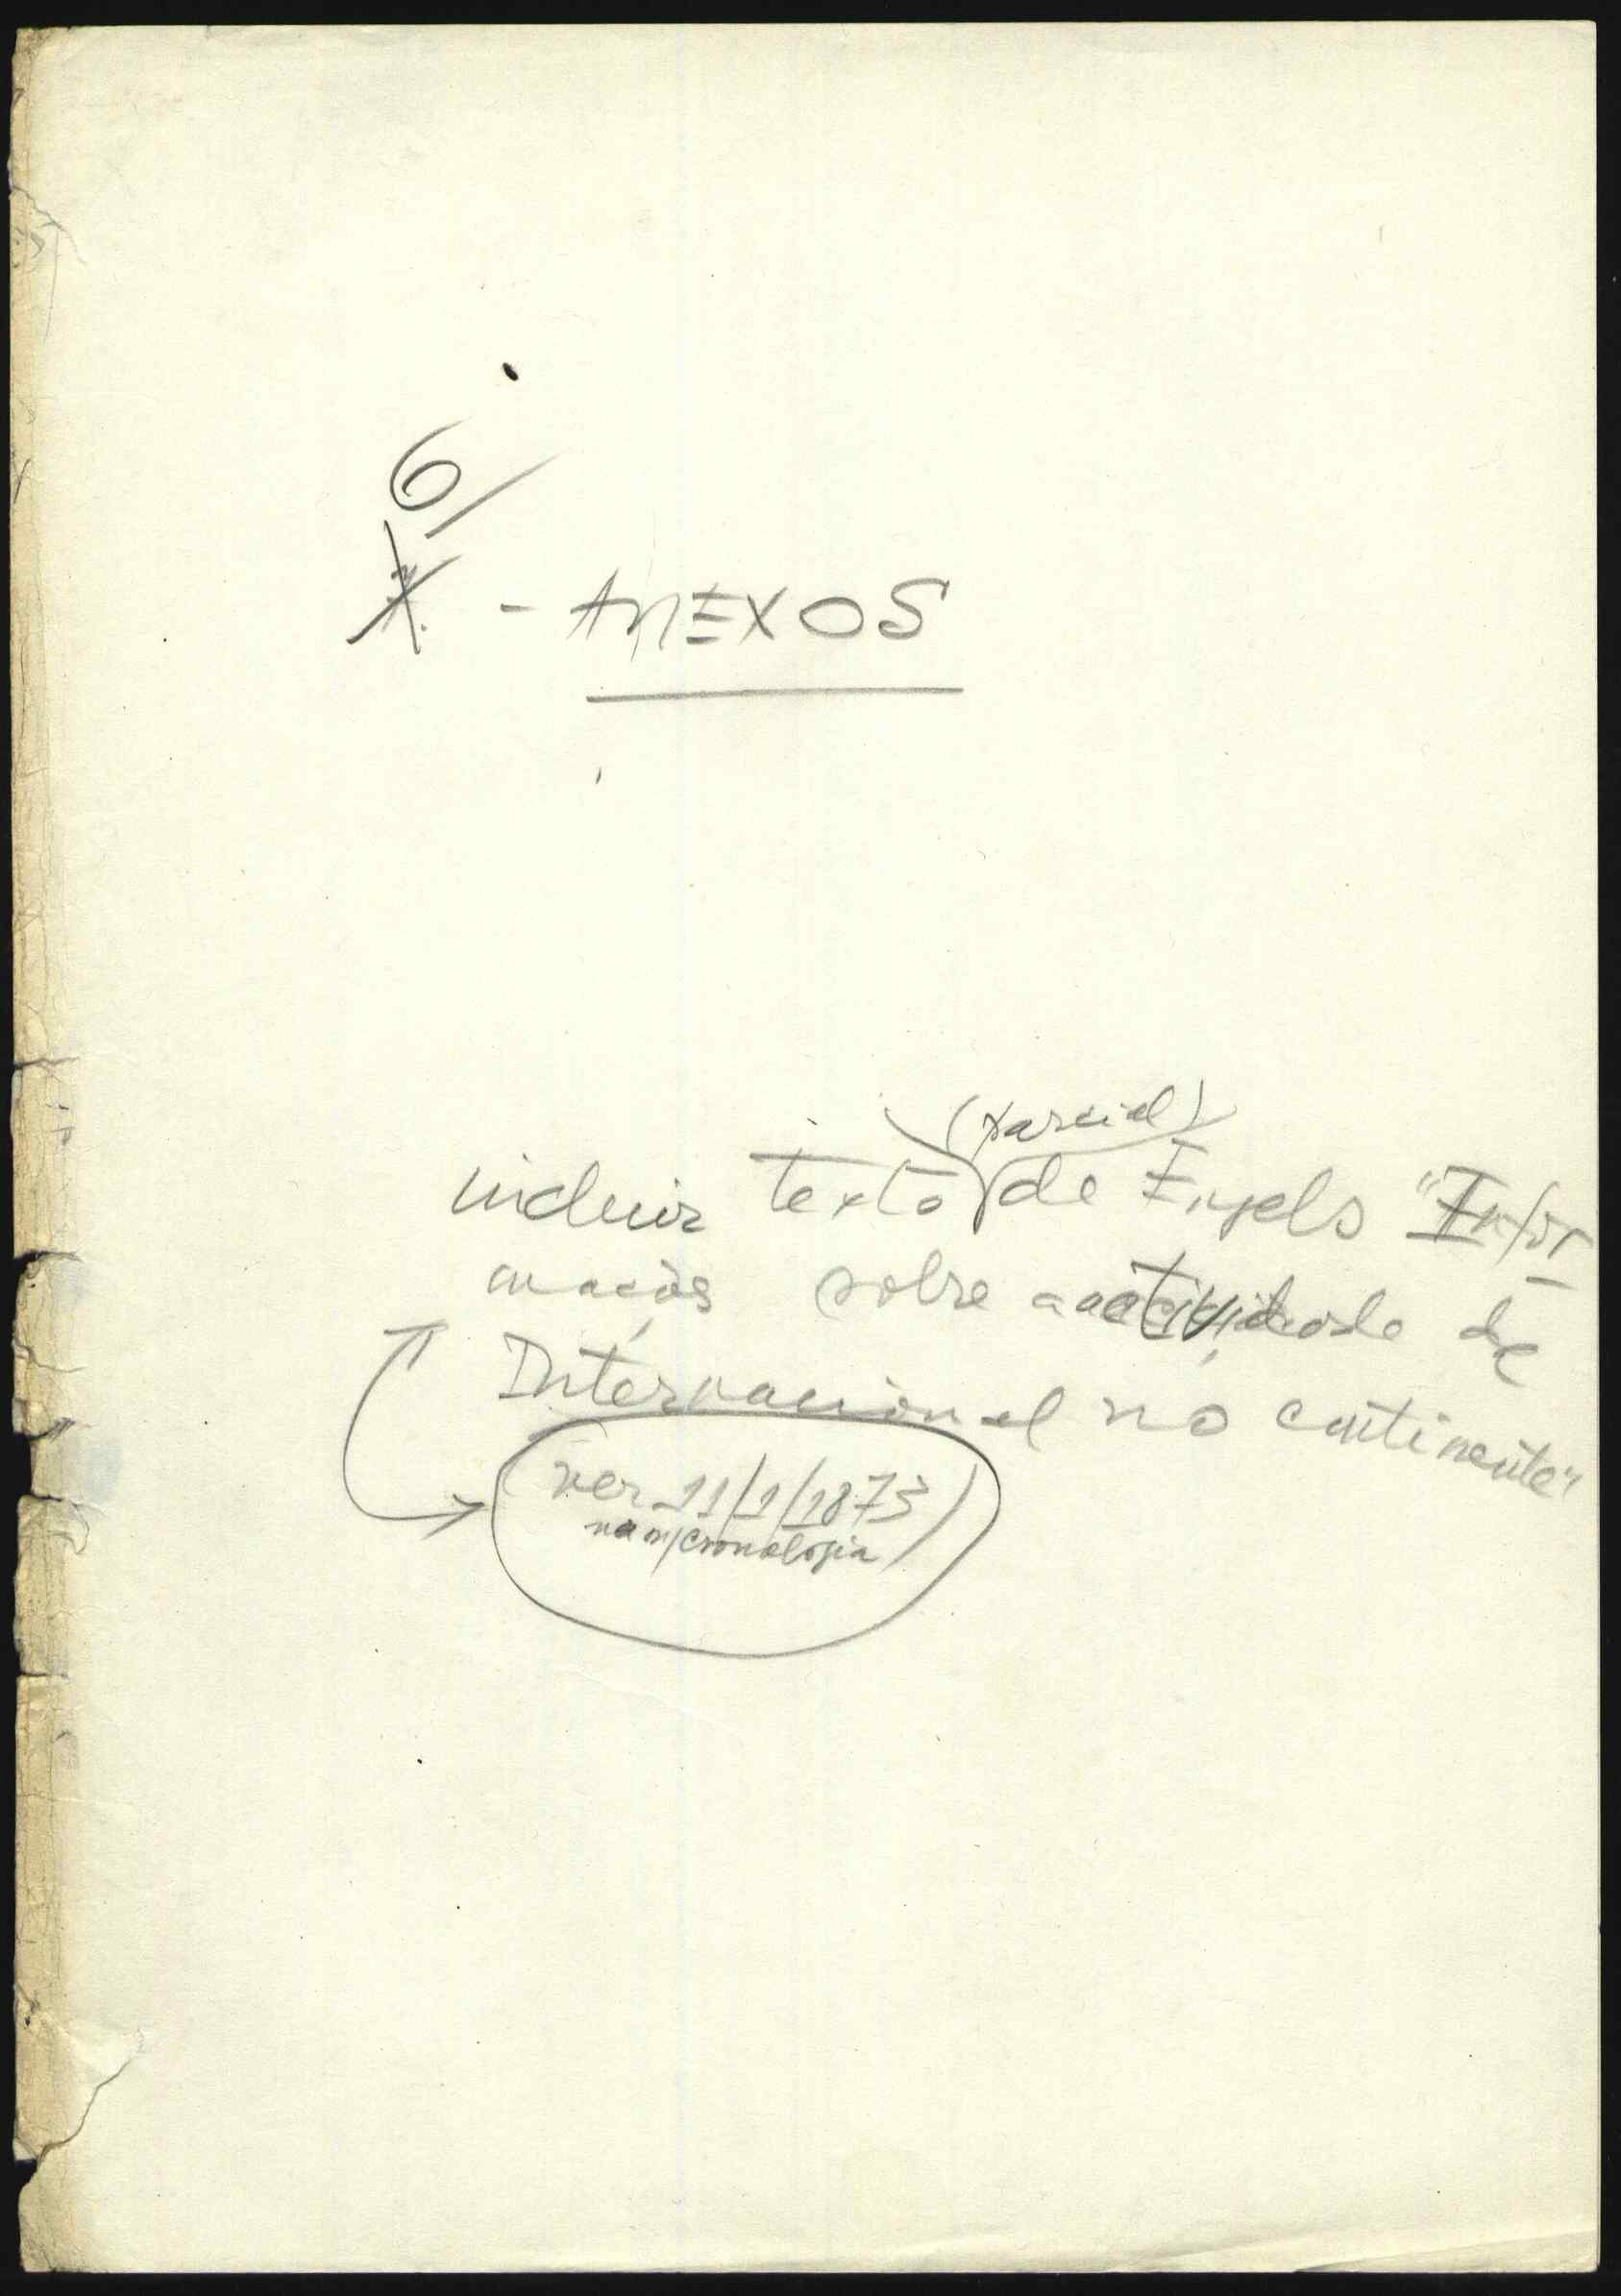 6/
- ANEXOS
(parcial)
incluir texto de Engels "Infor
mações sobre a actividade da
Internacional no continente"
ver 11/1/1873)
na m/cronologia